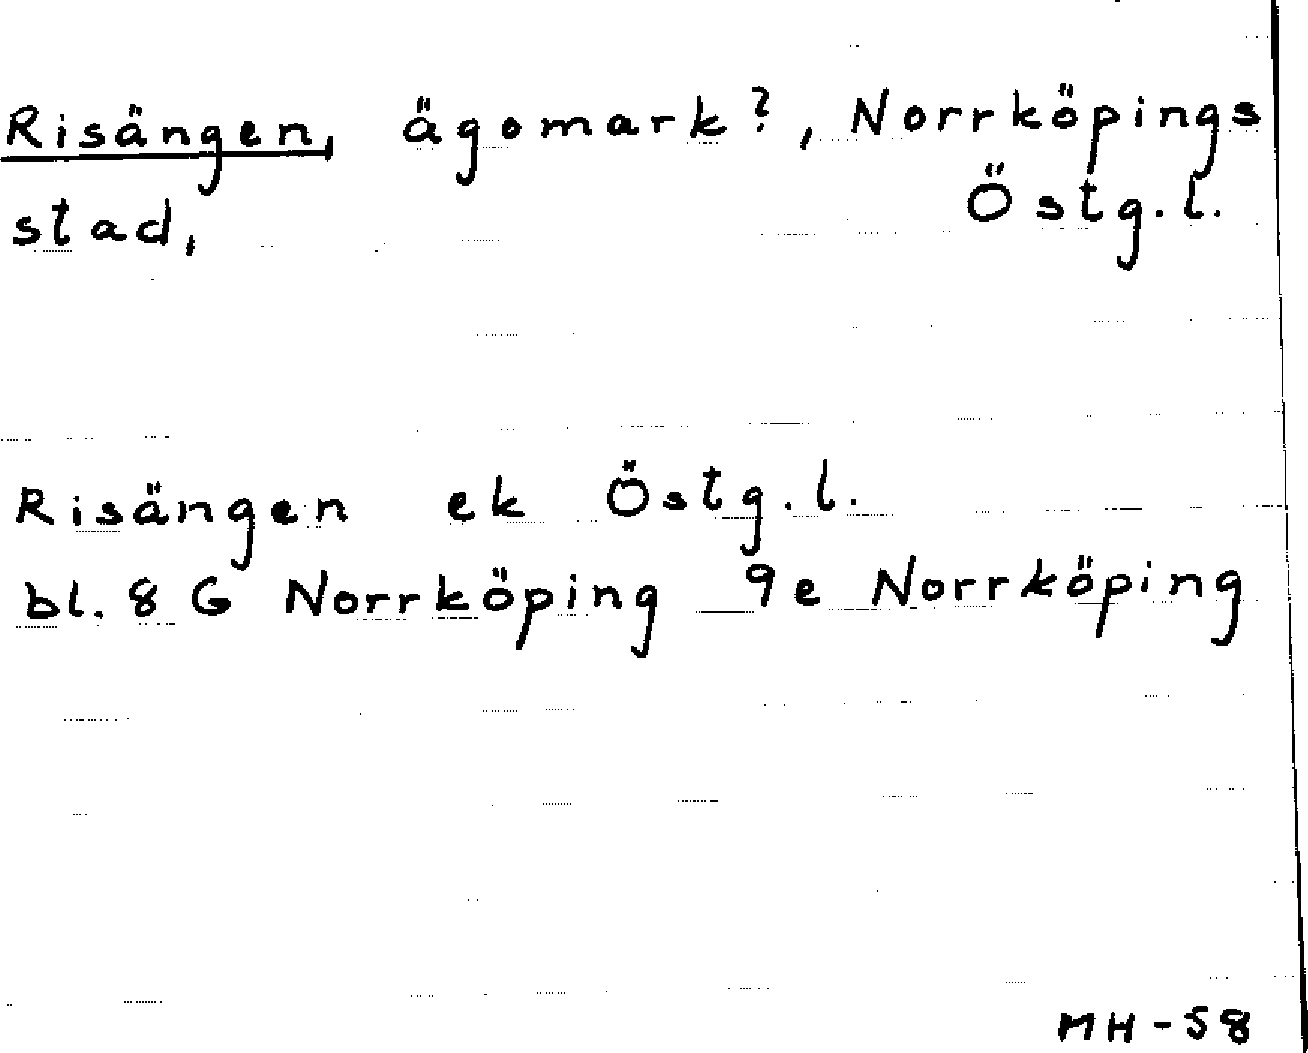 Risängen, ägomark?, Norrköpings
stad, Östg.l.
Risängen ek Östg.l.
bl. 8 G Norrköping 9e Norrköping
MH-58